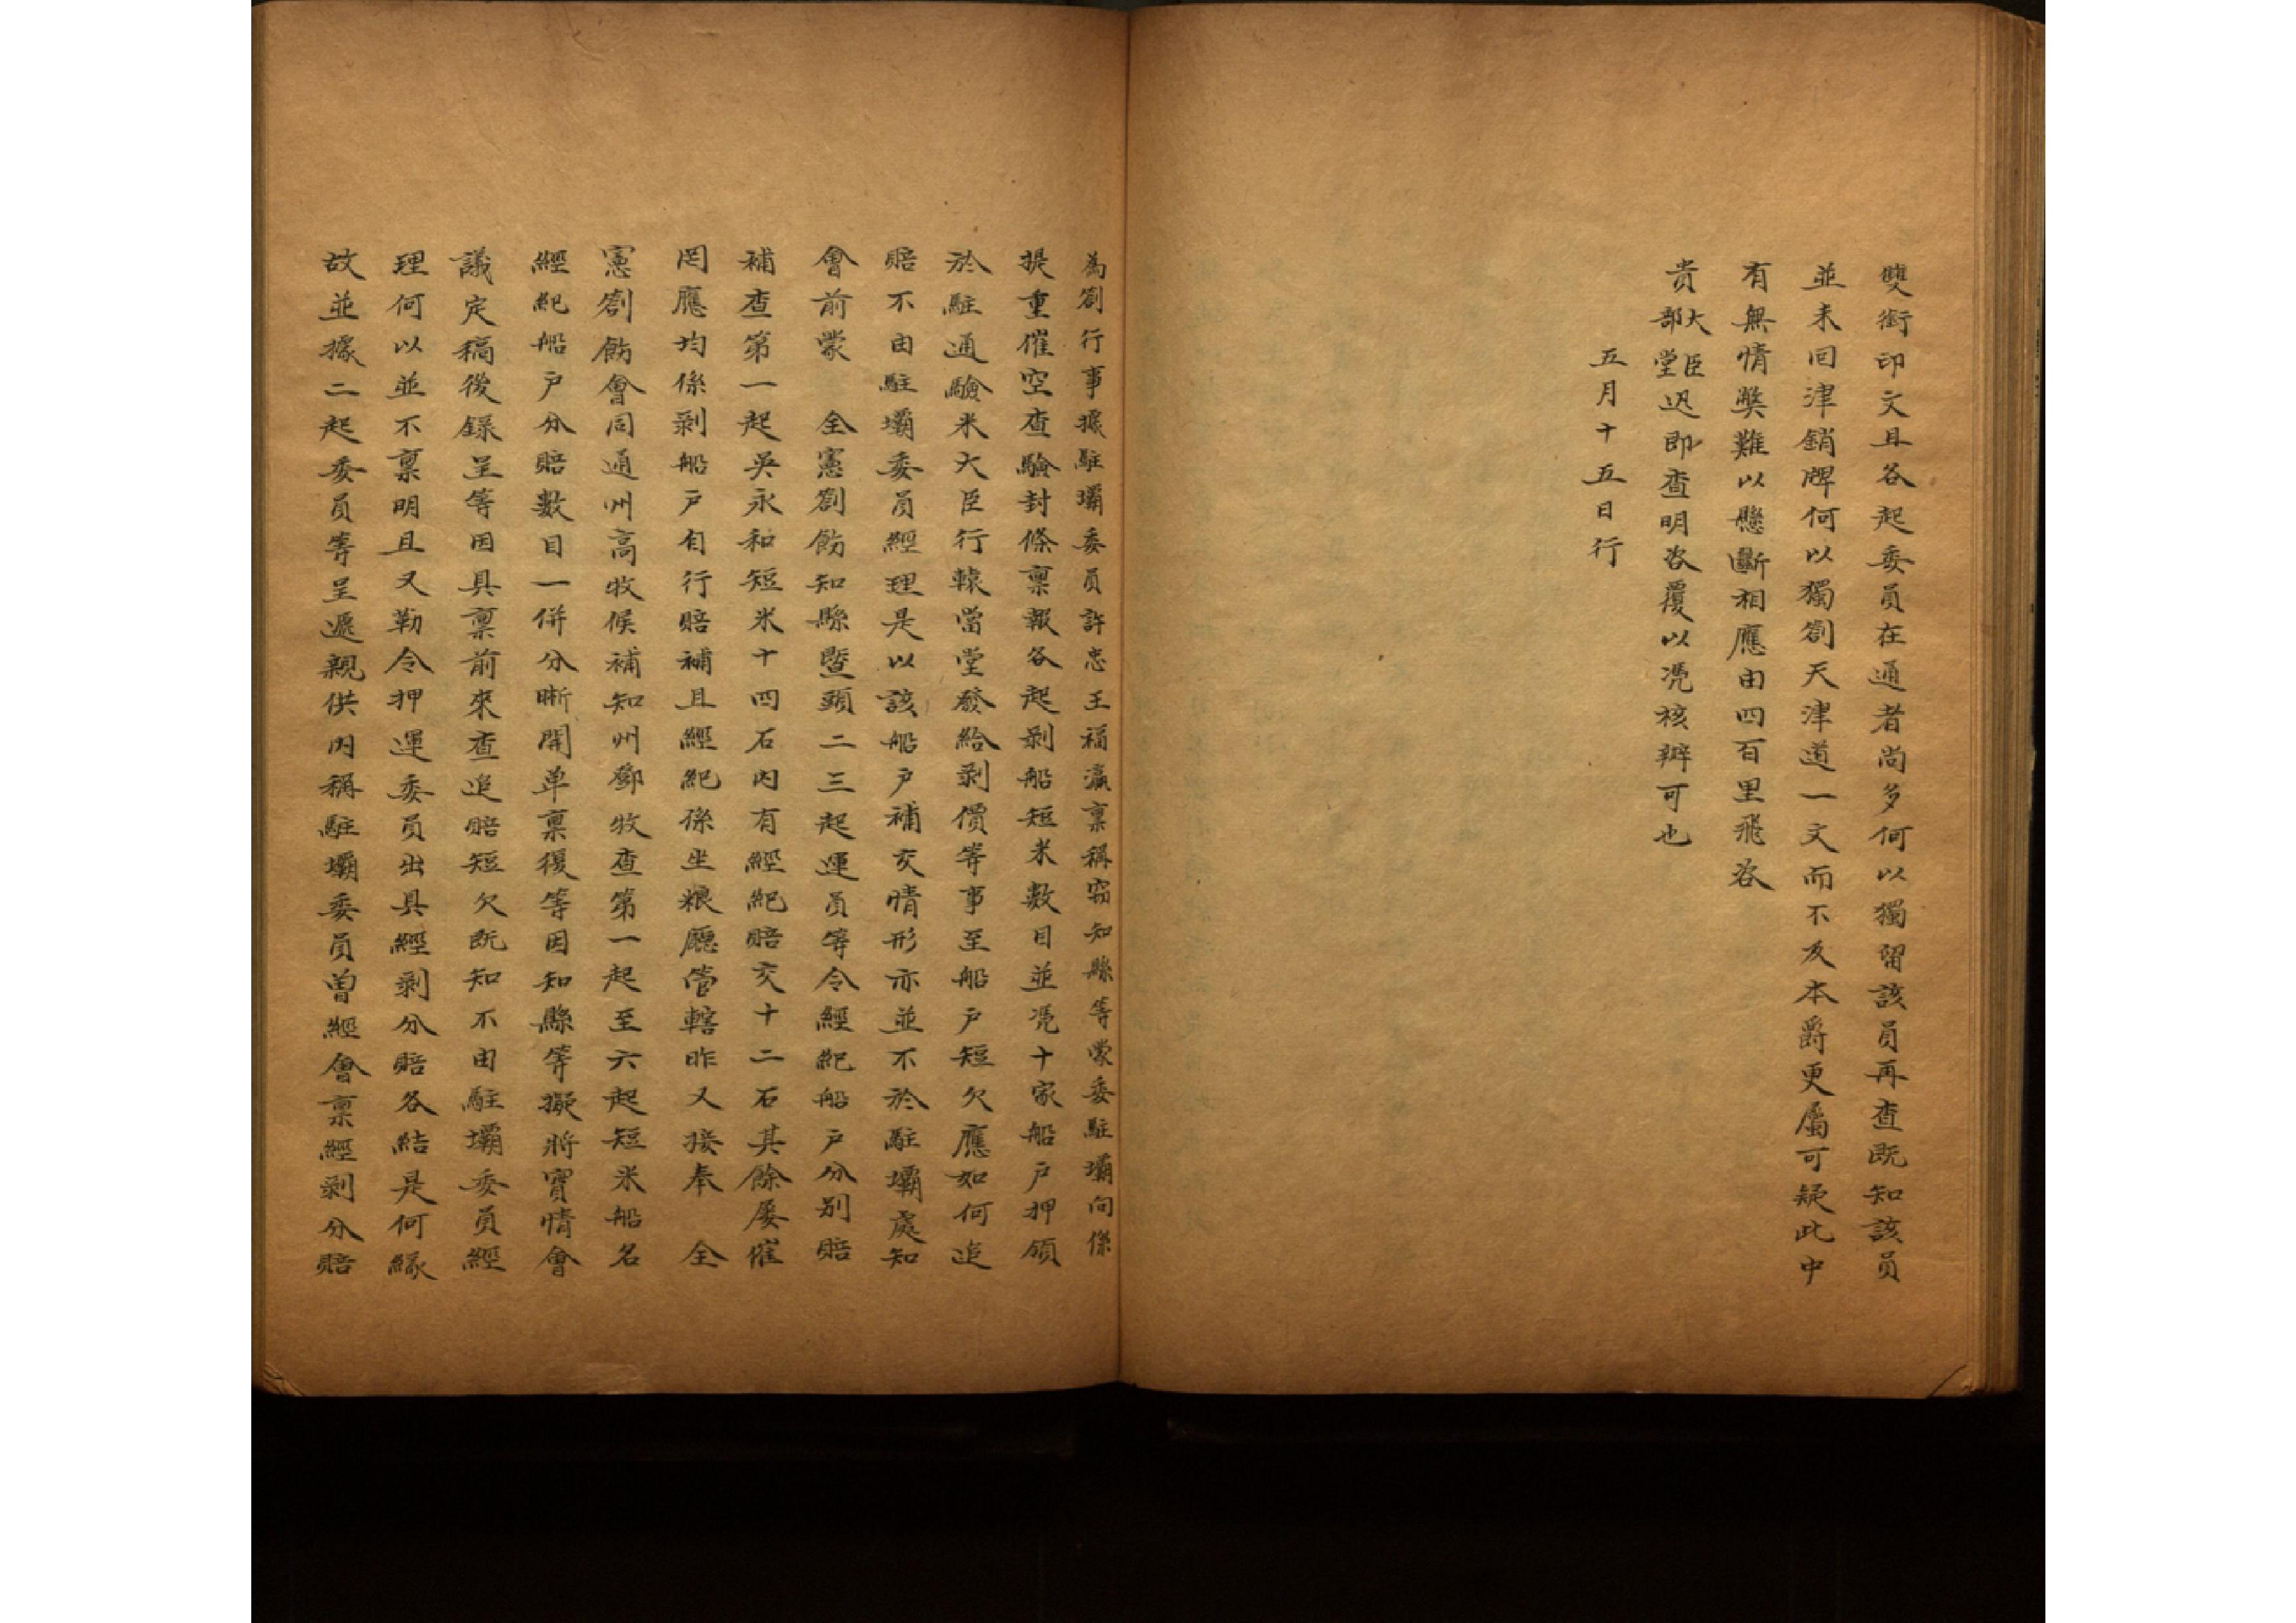 雙銜印文且各起委員在通者尚多何以獨留該員再查既知該員
並未回津銷牌何以獨劄天津道一文而不及本爵更屬可疑此中
有無情獘難以懸斷相應由四百里飛咨
貴大臣部堂迅即查明咨覆以凴核辦可也
五月十五日行
為劄行事據駐壩委員許忠王福瀛禀稱窃知縣等蒙委駐壩向係
提重催空查驗封條禀報各起剥船短米數目並凴十家船戶押領
於駐通驗米大臣行轅當堂發給剥價等事至船戶短欠應如何追
賠不由駐壩委員經理是以該船戶補交情形亦並不於駐壩處知
會前蒙　全憲劄飭知縣曁頭二三起運員等令經紀船戶分别賠
補查第一起吳永和短米十四石内有經紀賠交十二石其餘屡催
罔應均係剥船戶自行賠補且經紀係坐粮廳管轄昨又接奉　全
憲劄飭會同通州高牧候補知州鄧牧查第一起至六起短米船名
經紀船戶分賠數目一併分晰開单禀復等因知縣等擬將實情會
議定稿後錄呈等因具禀前來查追賠短欠既知不由駐壩委員經
理何以並不禀明且又勒令押運委員出具經剥分賠各結是何緣
故並據二起委員等呈遞親供内稱駐壩委員曽經會禀經剥分賠